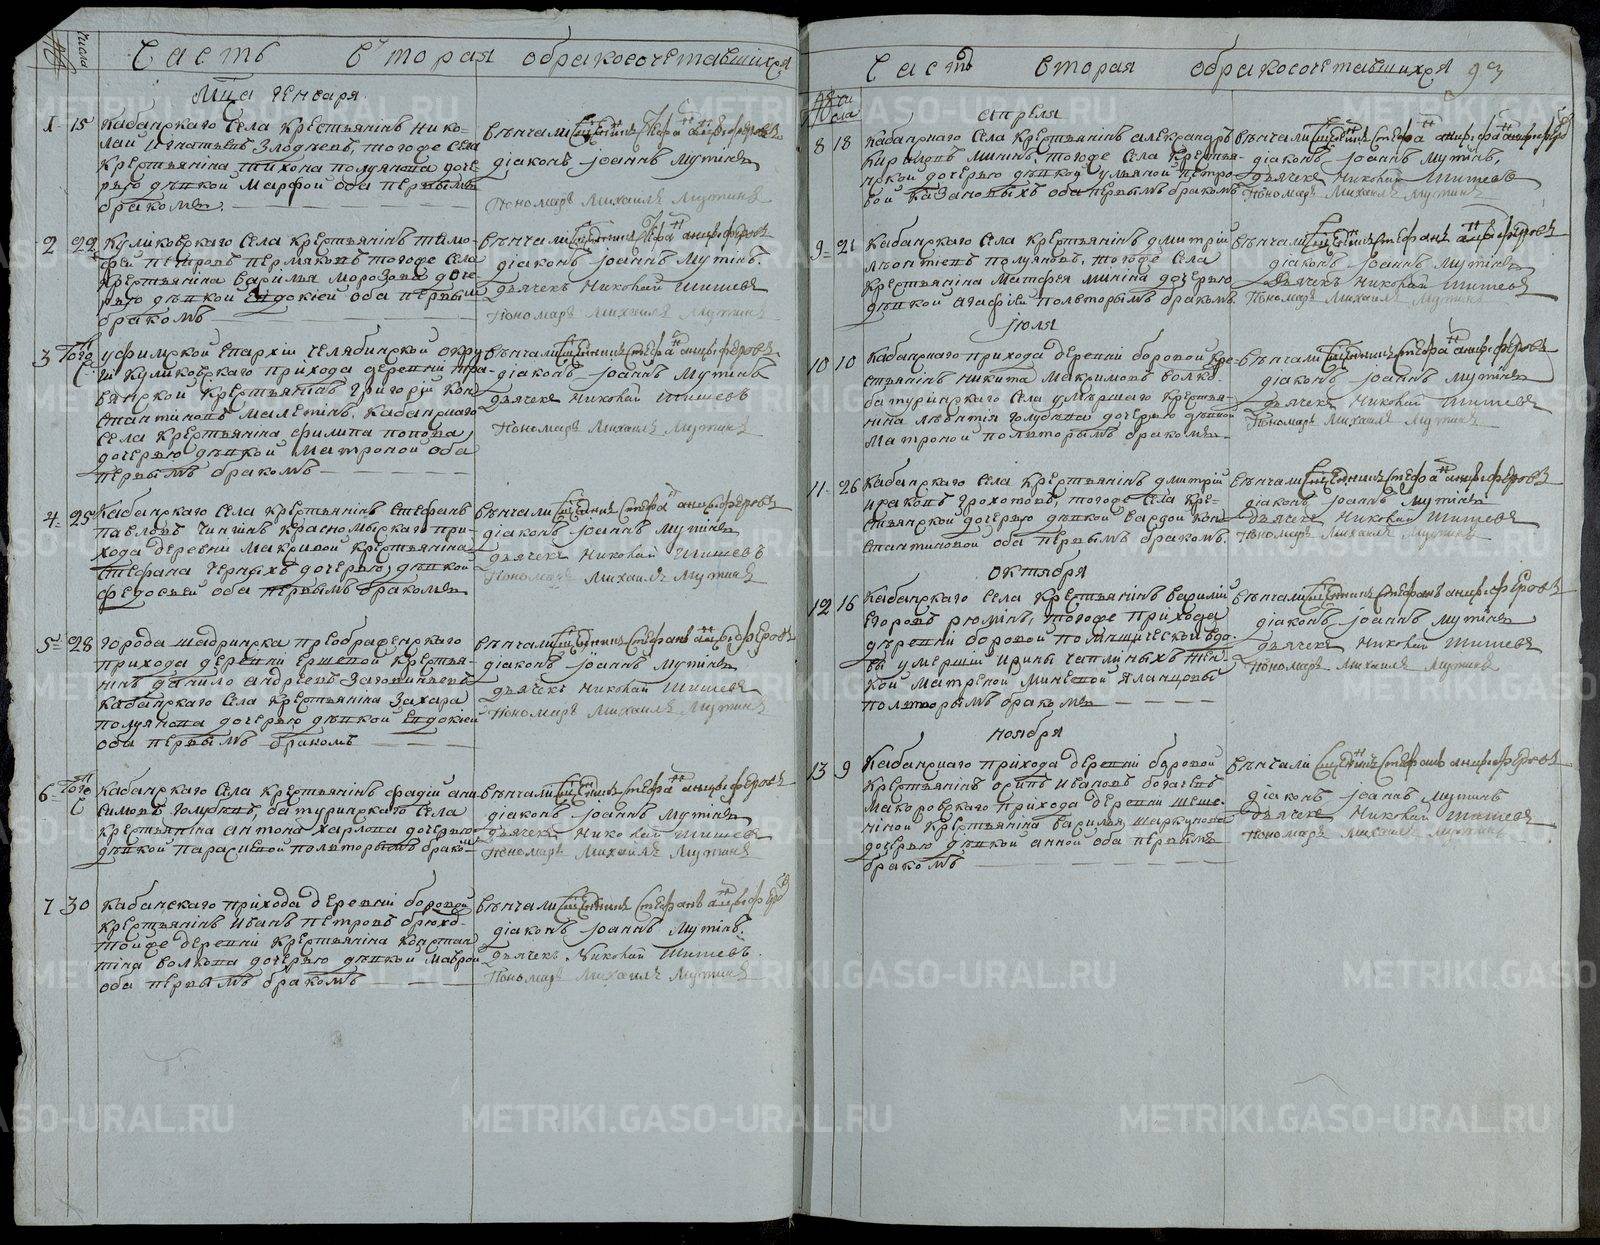 №
числа
Часть вторая обракосочетавшихся
Мца Генваря
1 15 Кабанскаго села крестьянинъ Нико-
лай Игнатьевъ Злодѣевъ, тогоже села
крестьянина Тихона Полуянова доче
рью дѣвкой Марфой оба первымъ
бракомъ.
вѣнчали Сщенникъ Стефанъ Анцыферовъ
діаконъ Іоаннъ Мутинъ
Пономарь Михаилъ Мутинъ
2 22 Куликовскаго села крестьянинъ Тимо-
фей Петровъ Пермяковъ тогоже села
крестьянина Василья Морозова доче-
рью дѣвкой Евдокіей оба первымъ
бракомъ
вѣнчали Сщенникъ Стефанъ Анцыферовъ
діаконъ Іоаннъ Мутинъ.
дьячекъ Николай Шишевъ
Пономарь Михаилъ Мутинъ
3 Того С уфимской епархіи челябинской окру
ги Куликовскаго прихода деревни Тра-
вянской крестьянинъ Григорій Кон
стантиновъ Малетинъ, Кабанскаго
села крестьянина Филипа Попова,
дочерью дѣвкой Матроной оба
первымъ бракомъ
вѣнчали Сщенникъ Стефанъ Анцыферовъ
діаконъ Іоаннъ Мутинъ
дьячекъ Николай Шишевъ
Пономарь Михаилъ Мутинъ
4 25 Кабанскаго села крестьянинъ Стефанъ
Павловъ Чигинъ Красномыскаго при-
хода деревни Макривой крестьянина
Стефана Черныхъ дочерью, дѣвкой
Федосьей оба первымъ бракомъ
вѣнчали Сщенникъ Стефанъ Анцыферовъ
діаконъ Іоаннъ Мутинъ
дьячекъ Николай Шишевъ
Пономарь Михаилъ Мутинъ
5 28 города Шадринска преображенскаго
прихода деревни Ершевой крестья-
нинъ Данило Андреевъ
Кабанскаго села крестьянина Захара
Полуянова дочерью дѣвкой Евдокіей
оба первымъ бракомъ
вѣнчали Сщенникъ Стефанъ Анцыферовъ
діаконъ Іоаннъ Мутинъ
дьячекъ Николай Шишевъ
Пономарь Михаилъ Мутинъ
6 Того С Кабанскаго села крестьянинъ Фадій Ани
симовъ Голубевъ, батуринскаго села
крестьянина Антона Харлова дочерью
дѣвкой Парасьевой полвторымъ брако
вѣнчали Сщенникъ Стефанъ Анцыферовъ
діаконъ Іоаннъ Мутинъ
дьячекъ Николай Шишевъ
Пономарь Михаилъ Мутинъ
7 30 Кабанскаго прихода деревни боровой
крестьянинъ Иванъ Петровъ
тойже деревни крестьянина Констан
тина Волкова дочерью дѣвкой Маврой
оба первымъ бракомъ
вѣнчали Сщенникъ Стефанъ Анцыферовъ
діаконъ Іоаннъ Мутинъ.
дьячекъ Николай Шишевъ.
Пономарь Михаилъ Мутинъ
Часть вторая обракосочетавшихся 93
№ числа
Апреля
8 18 Кабанскаго села крестьянинъ Александръ
Кириловъ Мининъ, тогоже села крестья-
нской дочерью дѣвкой Ульяной Петро-
вой Казановыхъ оба первымъ бракомъ
вѣнчали Сщенникъ Стефанъ Анцыферовъ
діаконъ Іоаннъ Мутинъ,
дьячекъ Николай Шишевъ
Пономарь Михаилъ Мутинъ
9 21 Кабанскаго села крестьянинъ Дмитрій
Леонтьевъ Полуяновъ, тогоже села
крестьянина Матфея Минина дочерью
дѣвкой Агафіей полвторымъ бракомъ
вѣнчали Сщенникъ Стефанъ Анцыферовъ
діаконъ Іоаннъ Мутинъ
дьячекъ Николай Шишевъ
Пономарь Михаилъ Мутинъ
Іюля
10 10 Кабанскаго прихода деревни боровой кре-
стьянинъ Никита Максимовъ Волко
батуринскаго села умершаго крестья-
нина Леонтія Голубева дочерью дѣвкой
Матроной полвторымъ бракомъ
вѣнчали Сщенникъ Стефанъ Анцыферовъ
діаконъ Іоаннъ Мутинъ
дьячекъ Николай Шишевъ
Пономарь Михаилъ Мутинъ
11 26 Кабанскаго села крестьянинъ Дмитрій
Грохотовъ, тогоже села кре-
стьянской дочерью дѣвкой Кон
стантиновой оба первымъ бракомъ.
вѣнчали Сщенникъ Стефанъ Анцыферовъ
діаконъ Іоаннъ Мутинъ
дьячекъ Николай Шишевъ
Пономарь Михаилъ Мутинъ
Октября
12 16 Кабанскаго села крестьянинъ Василій
Егоровъ, тогоже прихода
деревни боровой вдо-
вы умершій Ирины Чаплиныхъ жен-
кой Матреной
полвторымъ бракомъ
вѣнчали Сщенникъ Стефанъ Анцыферовъ
діаконъ Іоаннъ Мутинъ
дьячекъ Николай Шишевъ
Пономарь Михаилъ Мутинъ
Ноября
13 9 Кабанскаго прихода деревни боровой
крестьянинъ Ивановъ Богачевъ
Макаровскаго прихода деревни
крестьянина Василья Шаркунова
дочерью дѣвкой Анной оба первымъ
бракомъ
вѣнчали Сщенникъ Стефанъ Анцыферовъ
діаконъ Іоаннъ Мутинъ
дьячекъ Николай Шишевъ
Пономарь Михаилъ Мутинъ
METRIKI.GASO-URAL.RU